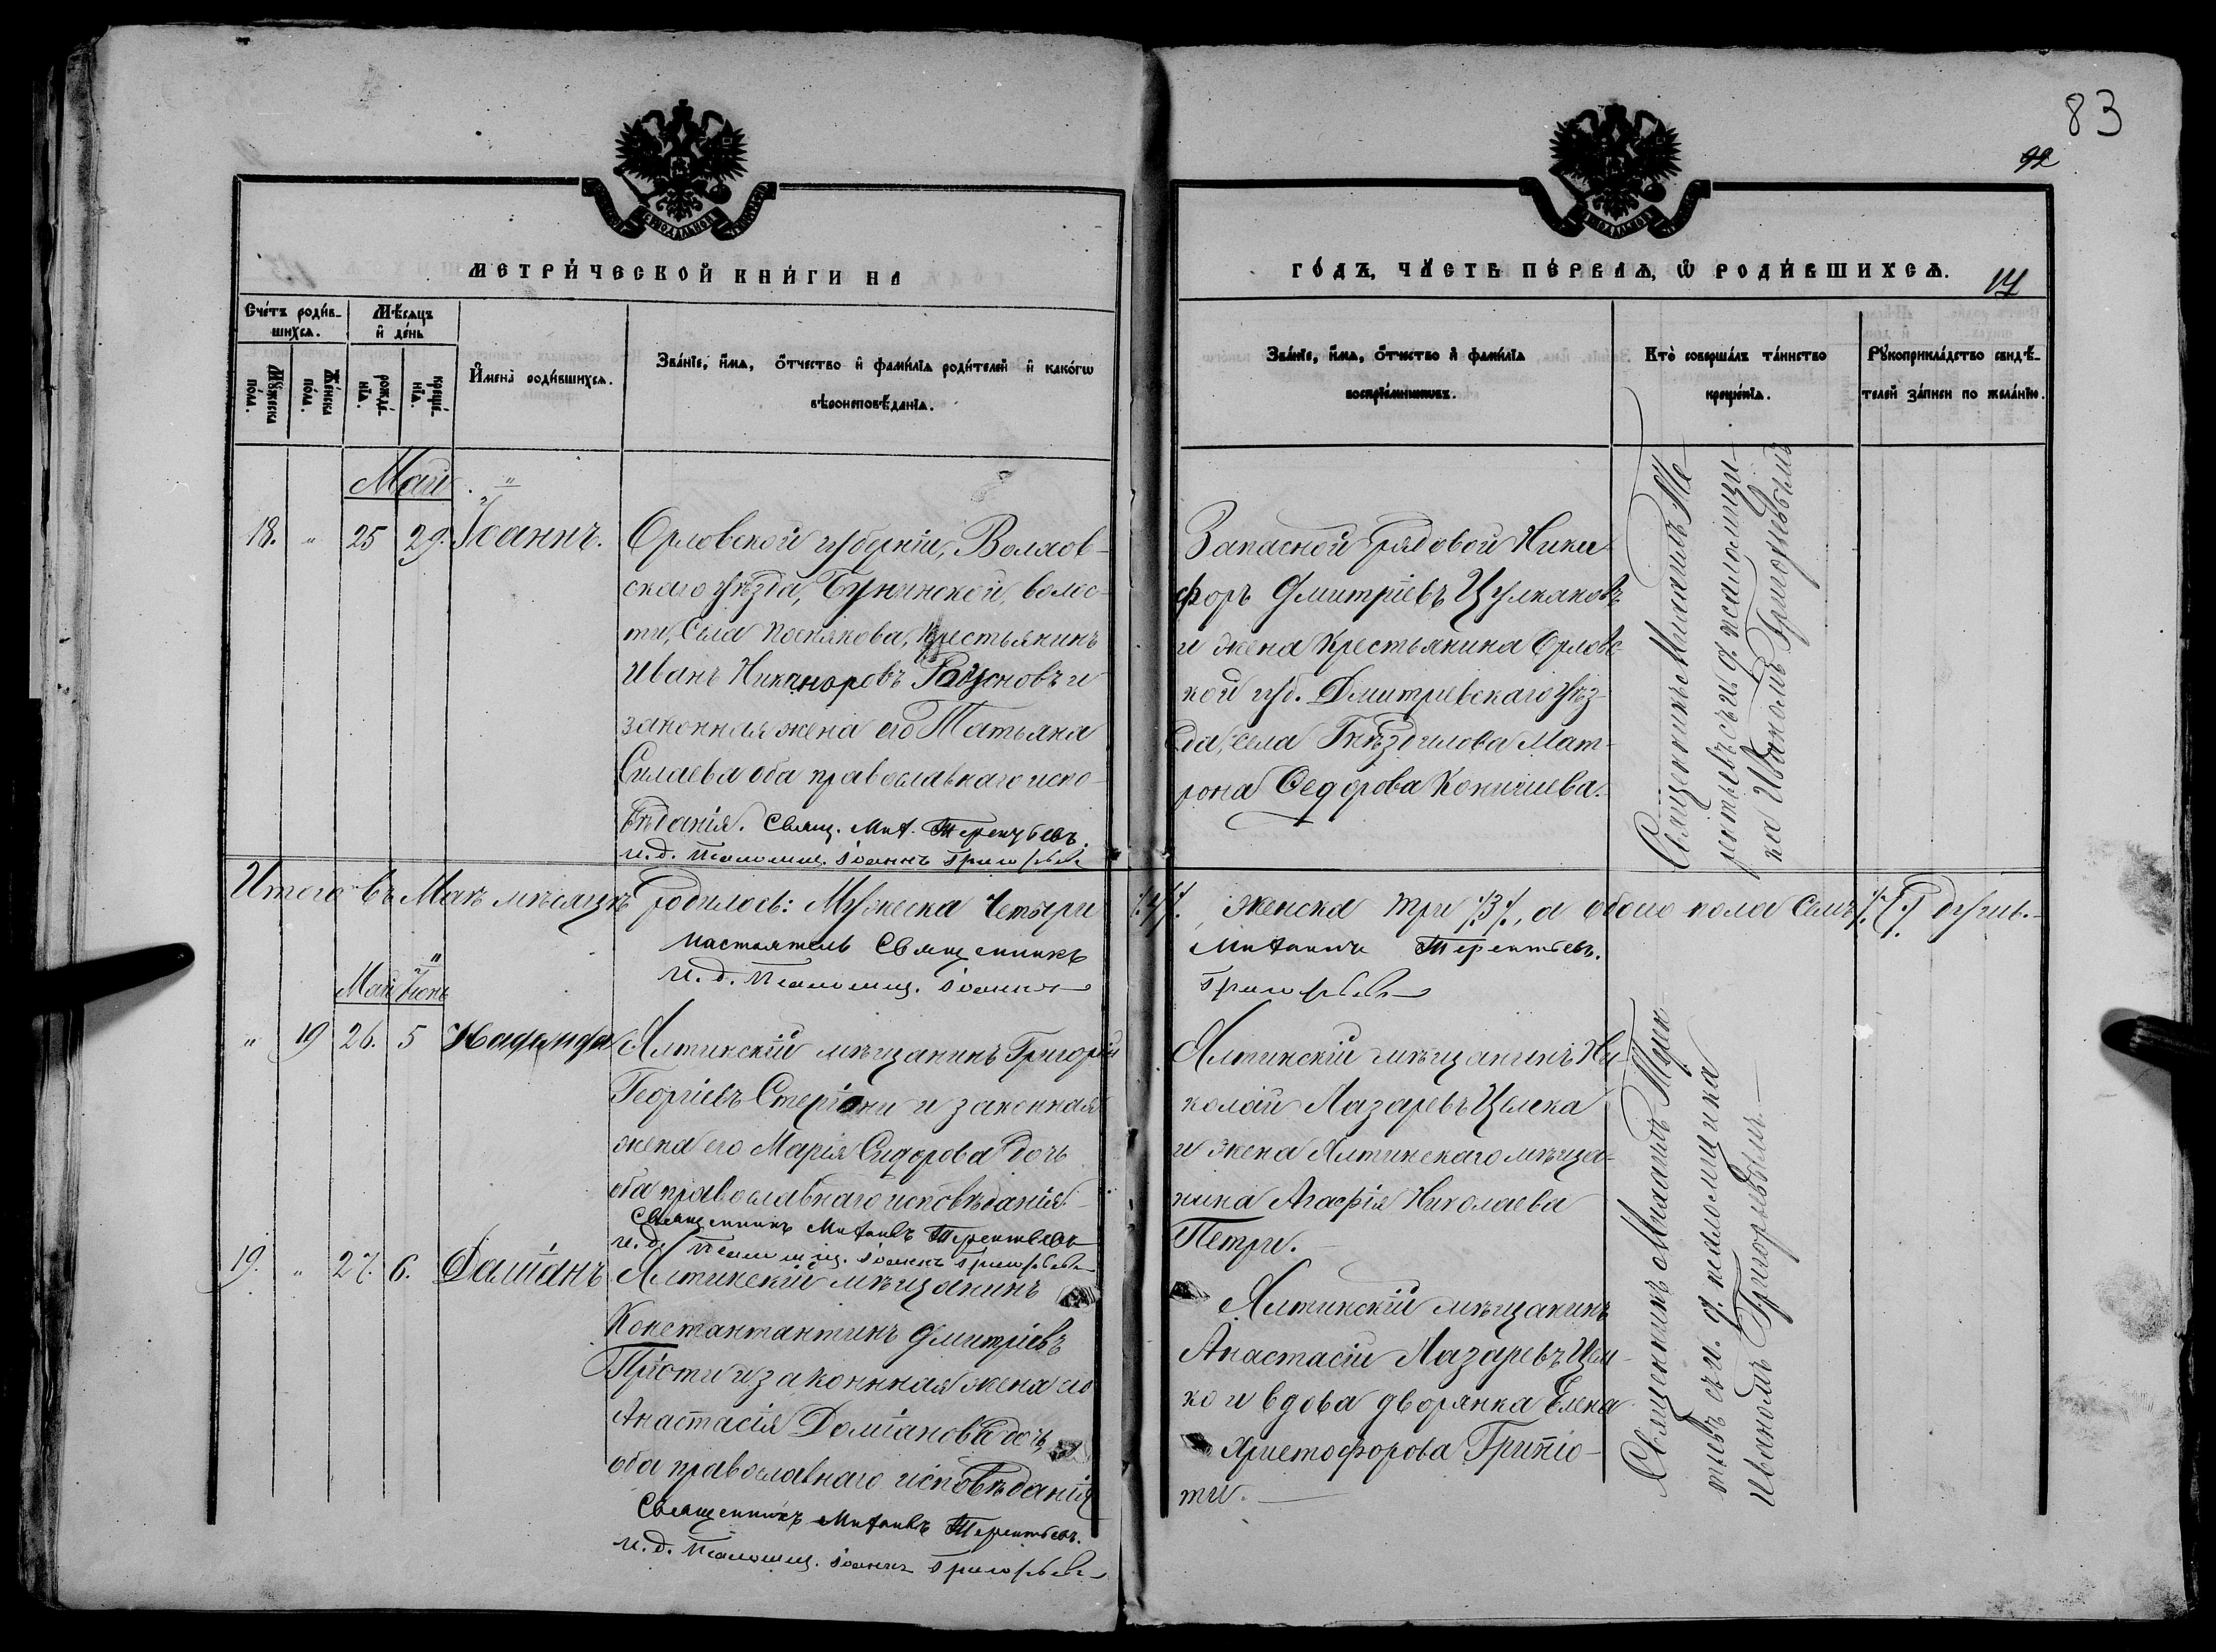 83
92
МЕТРИЧЕСКОЙ КНИГИ НА
ГОДЪ, ЧАСТЬ ПЕРВАЯ, Ѡ РОДИВШИХСЯ.
14
Счетъ родив-
шихся.
Мѣсяцъ
и день
Мужеска
пола.
Женска
пола.
рожде-
нія.
креще-
нія.
Имена родившихся.
Званіе, имя, отчество и фамилія родителей и какогѡ
вѣроисповѣданія.
Званіе, имя, отчество и фамилія
воспріемниковъ.
Кто совершалъ таинство
крещенія.
Рукоприкладство свидѣ-
телей записи по желанію.
Май
18. " 25 29. Іоаннъ.
Орловской губерніи, Волхов-
скаго уѣзда, волос-
ти, Села Крестьянинъ
Иванъ Никаноровъ и
законная жена его Татьяна
Силаева оба православнаго испо-
вѣданія. Свящ. Мих. Терентьевъ.
И. д. Псаломщ. Іоаннъ Григорьевъ
Запасной рядовой Ники-
форъ Дмитріевъ Цулкановъ
и жена Крестьянина Орловс-
кой губ. Дмитріевскаго уѣз-
да, села Гнѣздилова Мат-
рона Ѳедорова
Священникъ Михаилъ Те-
рентьевъ съ и. д. псаломщи-
ка Иваномъ Григорьевымъ
Итого въ Маѣ мѣсяцѣ родилось: Мужеска Четыри
/4/. Женска три /3/, а обоего пола Семь /7/ душъ.
Настоятель Священникъ
Михаилъ Терентьевъ.
И. д. Псаломщ. Іоаннъ
Григорьевъ
Май Іюнь
" 19 26. 5 Надежда
Ялтинскій мѣщанинъ Григорій
Георгіевъ Стеріони и законная
жена его Марія Сидорова дочь
оба православнаго исповѣданія
Священникъ Михаилъ Терентьевъ
И. д. Псаломщ. Іоаннъ Григорьевъ
Ялтинскій мѣщанинъ Ни-
колай Лазаревъ
и жена Ялтинскаго мѣща-
нина Агафія Николаева
Петри.
19. " 27. 6. Даміанъ
Ялтинскій мѣщанинъ
Константантинъ Дмитріевъ
и законнная жена его
Анастасія Доміанова дочь,
оба православнаго исповѣданія
Священникъ Михаилъ Терентьевъ.
И. д. Псаломщ. Іоаннъ Григорьевъ
Ялтинскій мѣщанинъ
Анастасій Лазаревъ Цели-
ко и вдова дворянка Елена
Христофорова Грипіо-
ти.
Священникъ Михаилъ Терен-
тьевъ съ и. д. псаломщика
Иваномъ Григорьевымъ.